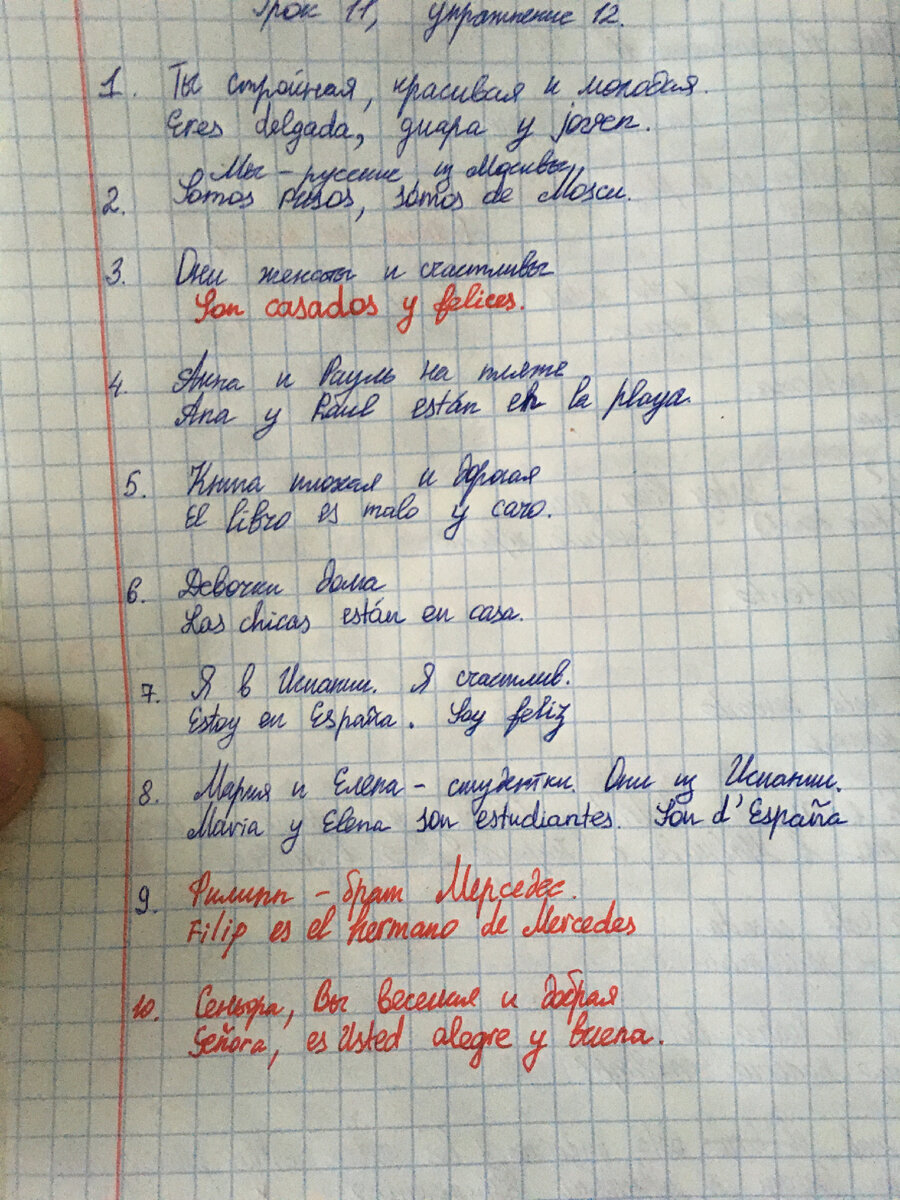 Урок 11, упражнение 12.
1. Ты стройная, красивая и молодая.
Eres delgada, guapa y joven.
Мы - русские, из Москвы
2. Somos rusos, sómos de Moscu.
3. Они женаты и счастливы
Son casados y felices.
4. Анна и Рауль на пляже
Ana y Raul están en la playa.
5. Книга плохая и дорогая
El libro es malo y caro.
6. Девочки дома
Las chicas están en casa.
7. Я в Испании. Я счастлив.
Estoy en España. Soy feliz
8. Мария и Елена - студентки. Они из Испании.
Maria y Elena son estudiantes. Son d'España
9. Филипп - брат Мерседес.
Filip es el hermano de Mercedes
10. Сеньора, Вы веселая и добрая
Señora, es Usted alegre y buena.